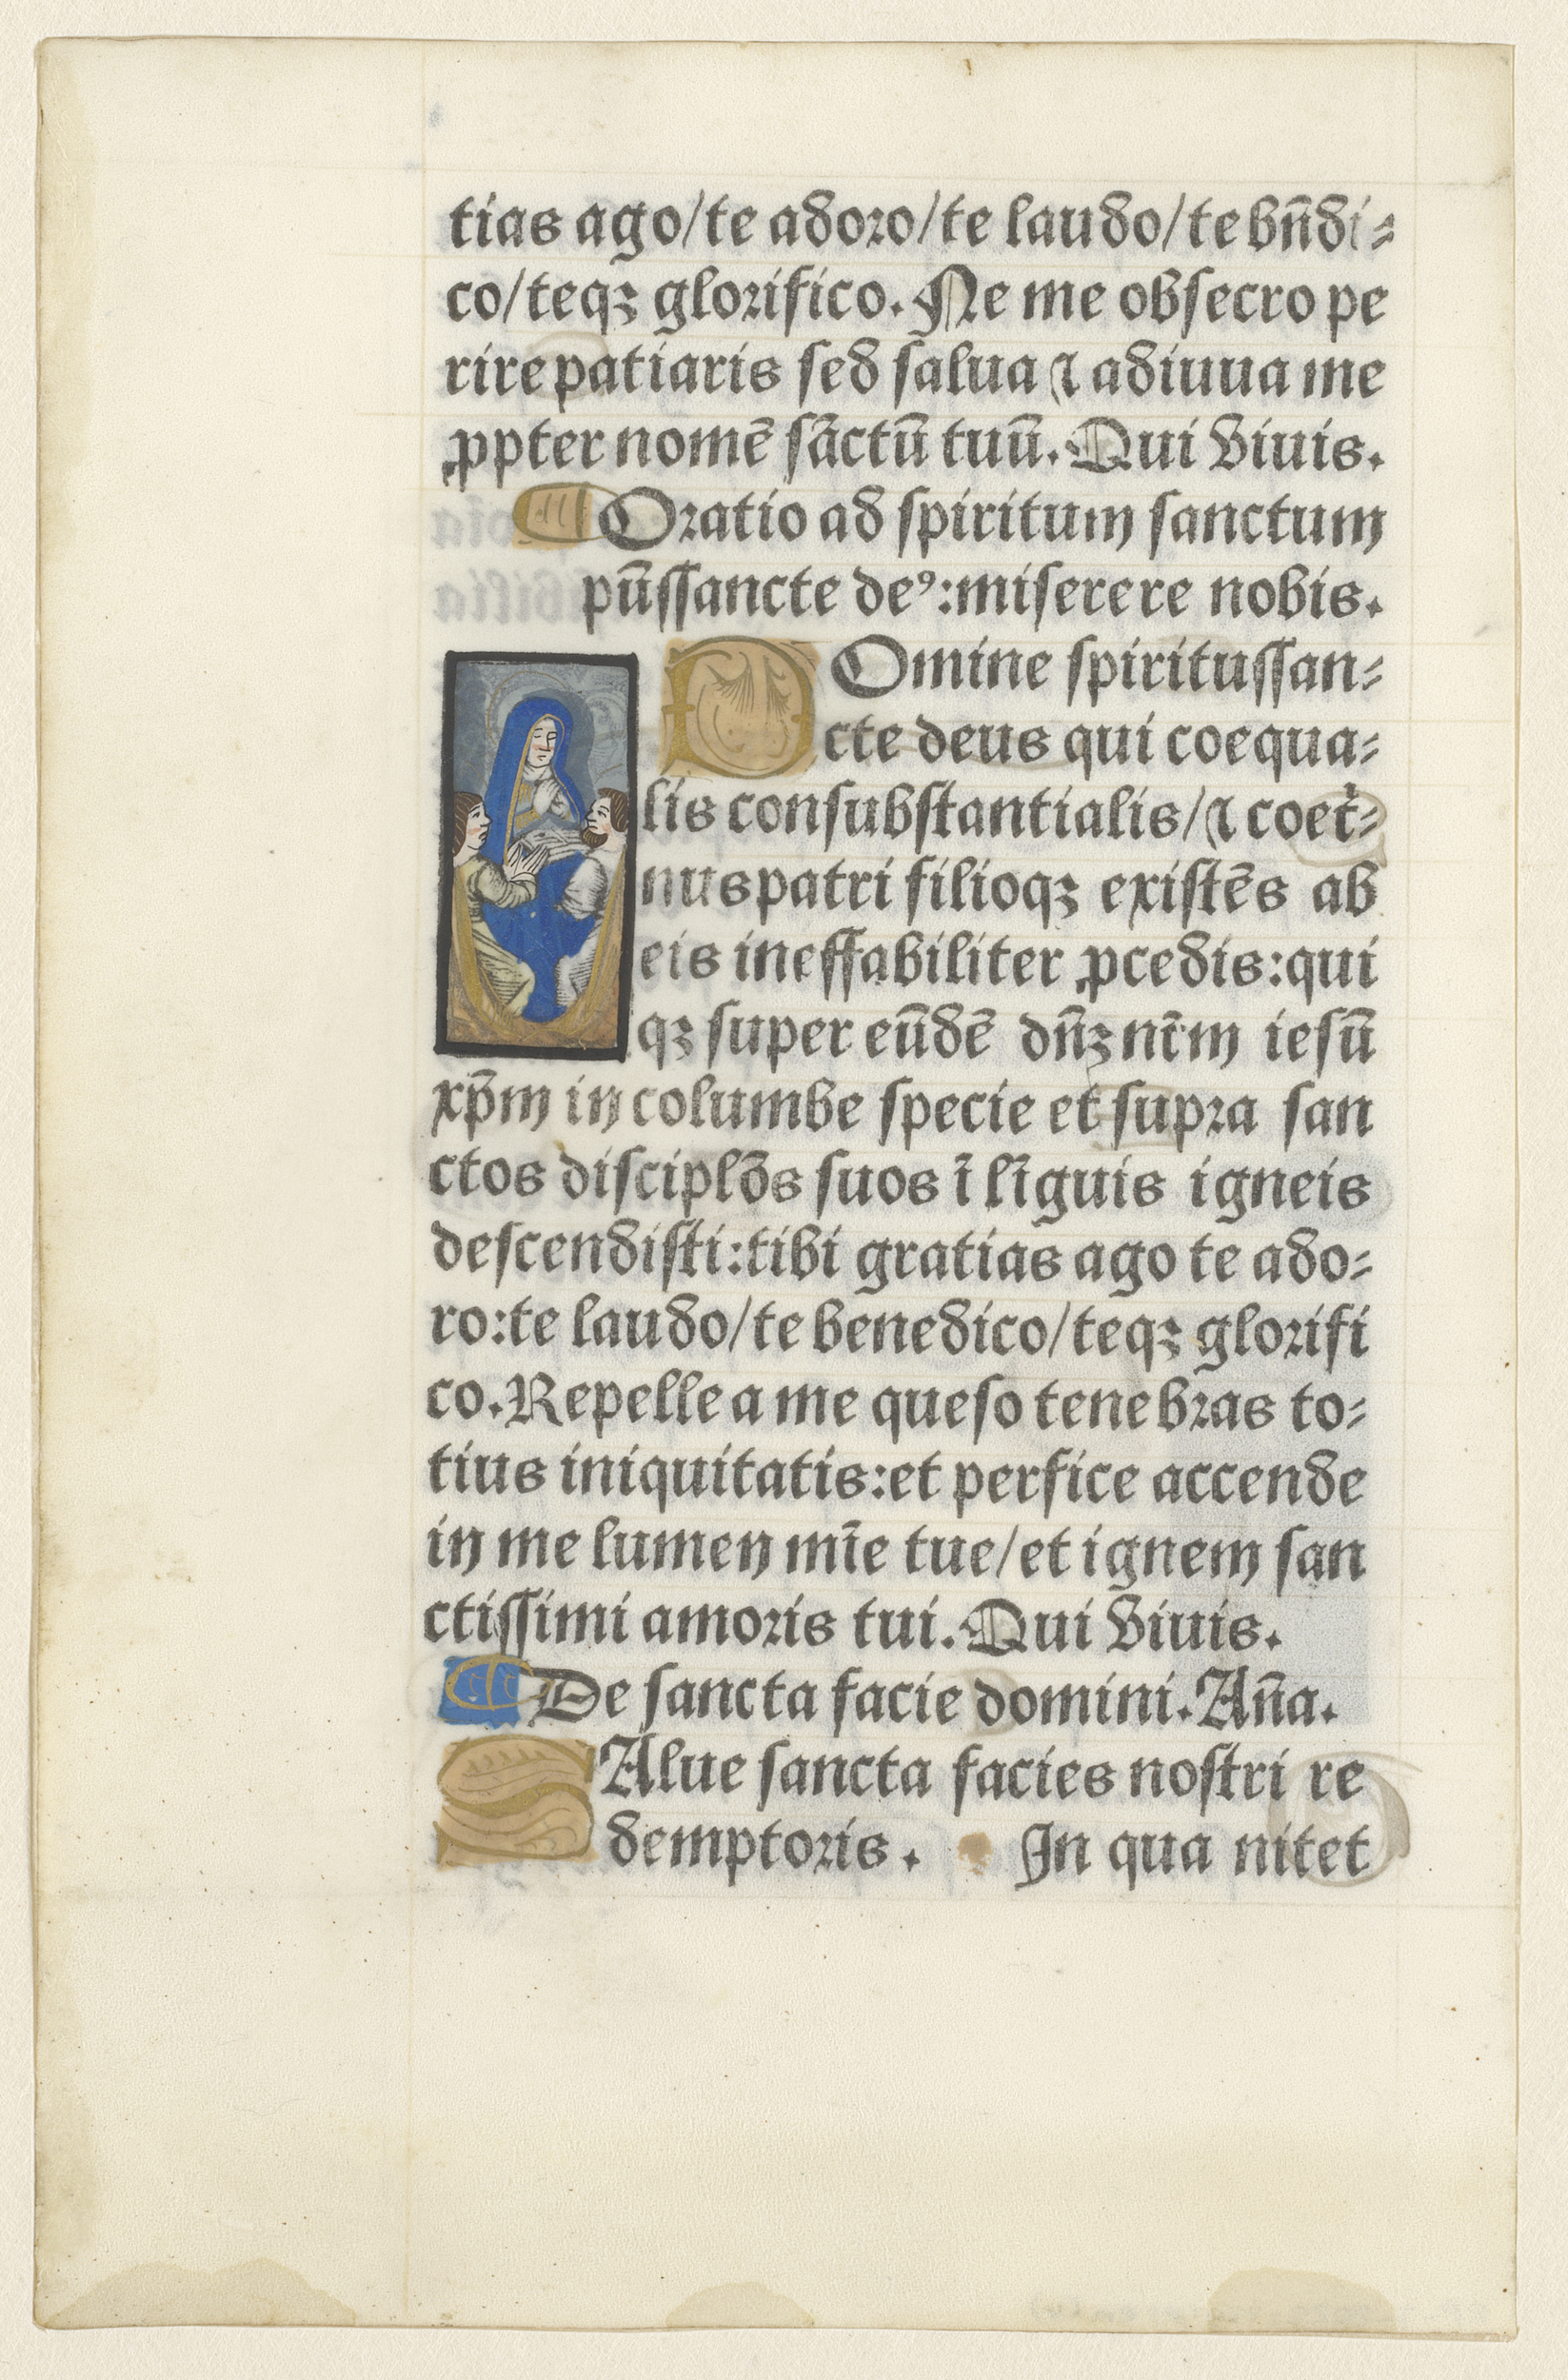 tias ago/te adoro/te laudo/te bn̄di⸗
co/teqꝫ glorifico. Ne me obsecro pe
rire patiaris sed salua ⁊ adiuua me
ꝓpter nomē sāctū tuū. Qui viuis.
Oratio ad spiritum sanctum
pūssancte deꝰ: miserere nobis.
DOmine spiritussan⸗
cte deus qui coequa⸗
lis consubstantialis/⁊ coet̉⸗
nus patri filioqꝫ existēs ab
eis ineffabiliter ꝓcedis: qui
qꝫ super eūdē dn̄ꝫ nr̄m iesū
xp̄m in columbe specie et supra san
ctos disciplōs suos ī līguis igneis
descendisti: tibi gratias ago te ado⸗
ro: te laudo/te benedico/teqꝫ glorifi
co. Repelle a me queso tenebras to⸗
tius iniquitatis: et perfice accende
in me lumen mīe tue/et ignem san
ctissimi amoris tui. Qui viuis.
De sancta facie domini. An̄a.
SAlue sancta facies nostri re
demptoris. In qua nitet